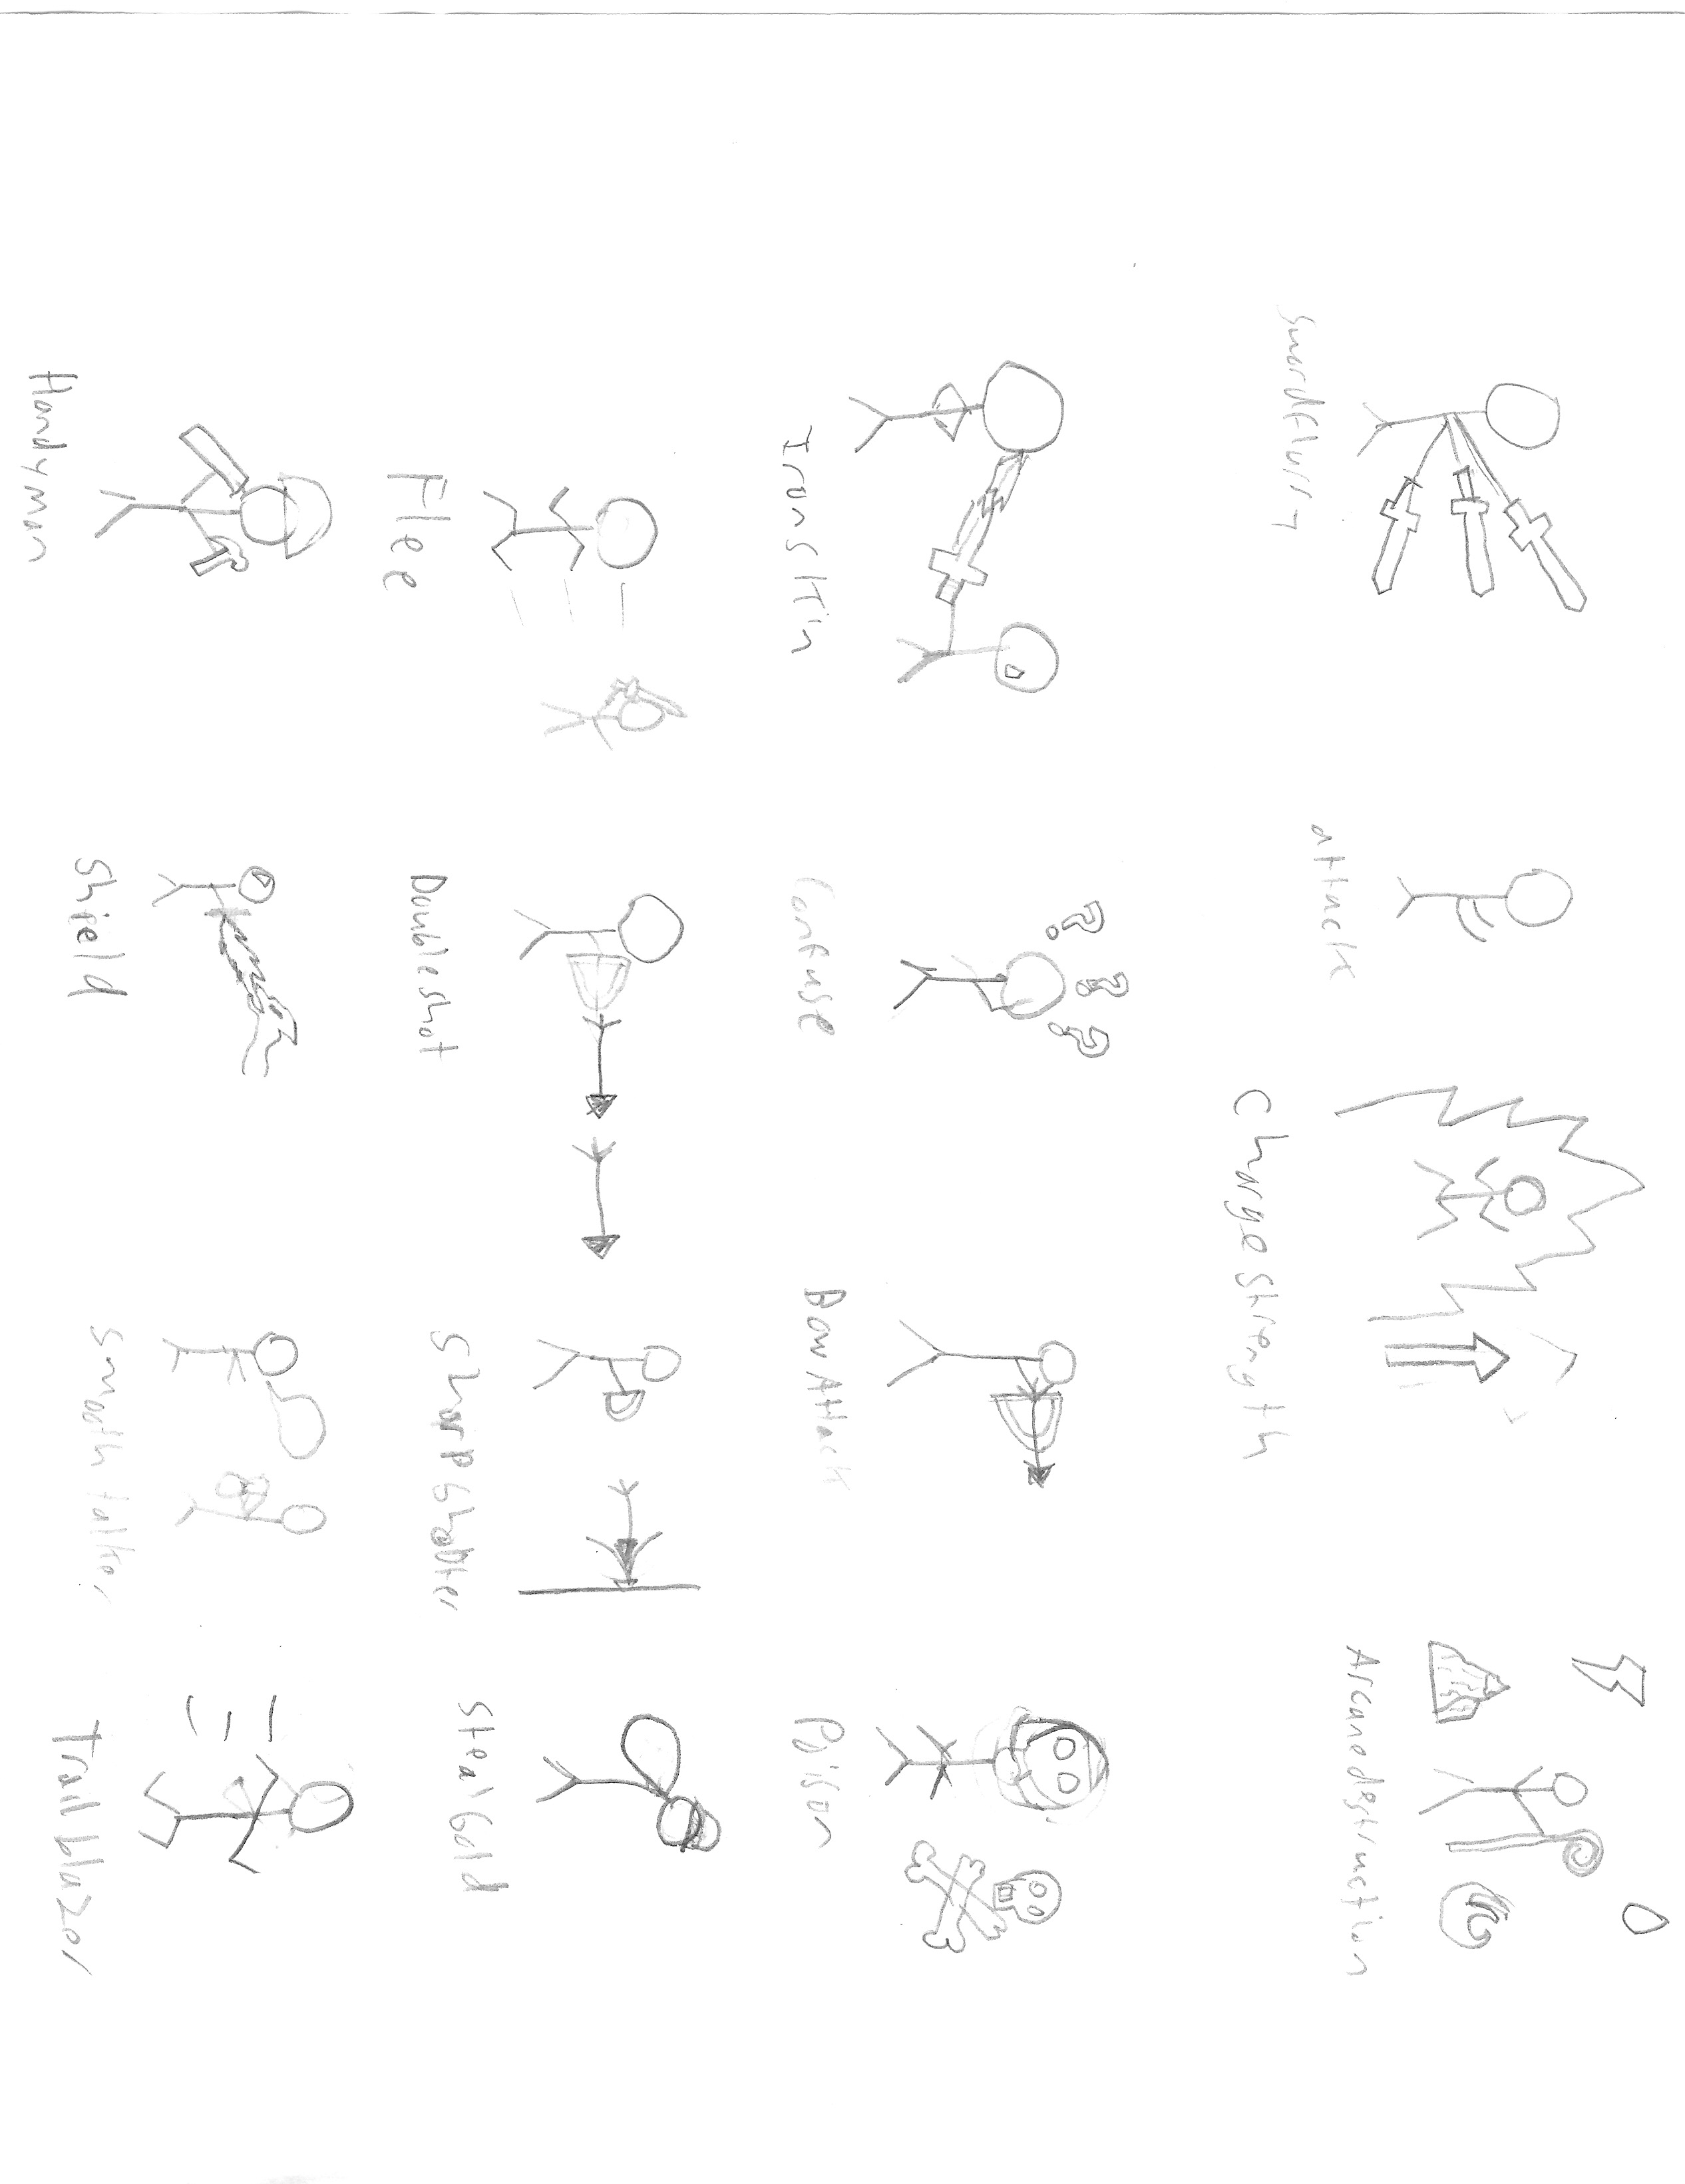 Swordflurry
attack
Chargestrength
Arcanedestruction
? ? ?
IronsKin
Confuse
Bow Attack
Poison
Flee
Doubleshot
Sharpshooter
Steal Gold
Handyman
Shield
Smooth talker
Trail blazer